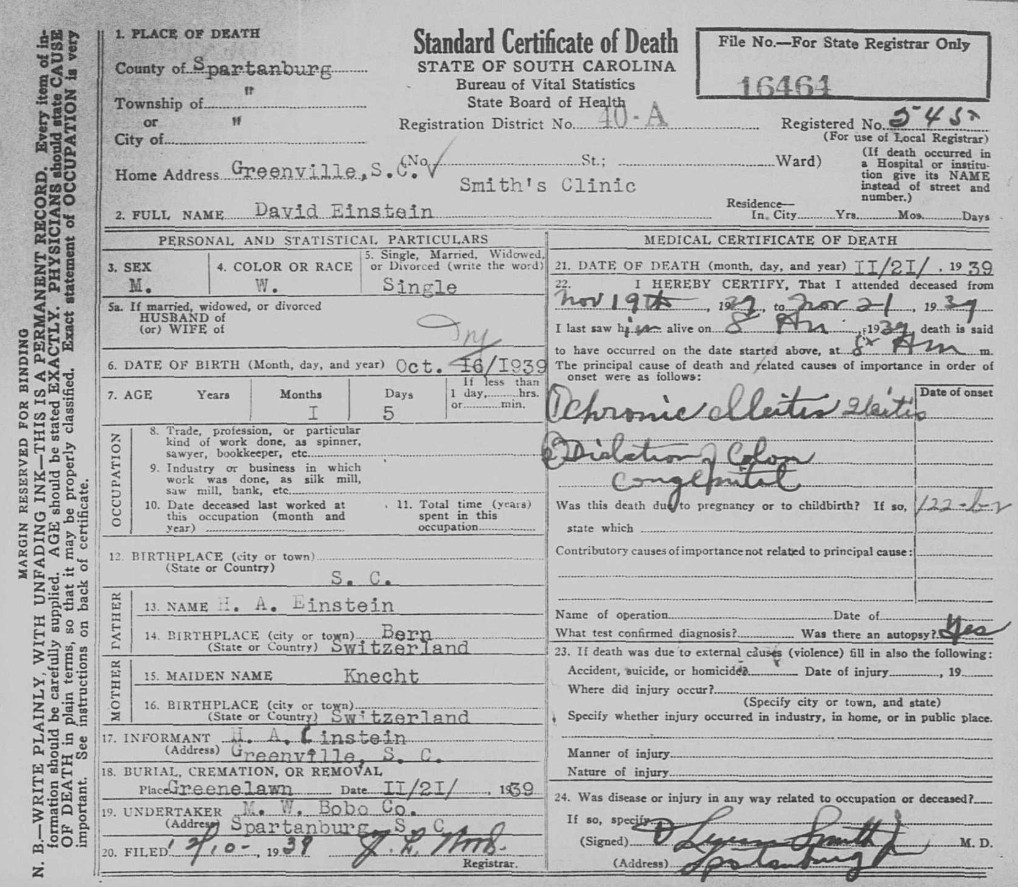 MARGIN RESERVED FOR BINDING
N. B.—WRITE PLAINLY, WITH UNFADING INK—THIS IS A PERMANENT RECORD. Every item of in-
formation should be carefully supplied. AGE should be stated EXACTLY. PHYSICIANS should state CAUSE
OF DEATH in plain terms, so that it may be properly classified. Exact statement of OCCUPATION is very
important. See instructions on back of certificate.
Standard Certificate of Death
STATE OF SOUTH CAROLINA
Bureau of Vital Statistics
State Board of Health
Registration District No. 40-A
File No.—For State Registrar Only
16464
Registered No. 545
(For use of Local Registrar)
(If death occurred in
a Hospital or institu-
tion give its NAME
instead of street and
number.)
1. PLACE OF DEATH
County of Spartanburg
Township of "
or
City of "
Home Address Greenville, S.C. (No. St.; Ward)
Smith's Clinic
2. FULL NAME David Einstein
Residence—
In City Yrs. Mos. Days
PERSONAL AND STATISTICAL PARTICULARS
3. SEX M.
4. COLOR OR RACE W.
5. Single, Married, Widowed,
or Divorced (write the word)
Single
5a. If married, widowed, or divorced
HUSBAND of
(or) WIFE of
6. DATE OF BIRTH (Month, day, and year) Oct. 16/1939
7. AGE Years Months Days
I 5
If less than
1 day, hrs.
or min.
OCCUPATION
8. Trade, profession, or particular
kind of work done, as spinner,
sawyer, bookkeeper, etc.
9. Industry or business in which
work was done, as silk mill,
saw mill, bank, etc.
10. Date deceased last worked at
this occupation (month and
year)
11. Total time (years)
spent in this
occupation
12. BIRTHPLACE (city or town)
(State or Country)
S. C.
FATHER
13. NAME H. A. Einstein
14. BIRTHPLACE (city or town) Bern
(State or Country) Switzerland
MOTHER
15. MAIDEN NAME Knecht
16. BIRTHPLACE (city or town)
(State or Country) Switzerland
17. INFORMANT H. A. Einstein
(Address) Greenville, S. C.
18. BURIAL, CREMATION, OR REMOVAL
Place Greenelawn Date II/2I/ , 1939
19. UNDERTAKER M. W. Bobo Co.
(Address) Spartanburg, S. C.
20. FILED 12/10- , 1939
Registrar.
MEDICAL CERTIFICATE OF DEATH
21. DATE OF DEATH (month, day, and year) II/2I/ , 1939
22. I HEREBY CERTIFY, That I attended deceased from
Nov 19th , 1939, to Nov. 21 , 1939
I last saw him alive on 8 Am , 1939 death is said
to have occurred on the date started above, at 8 Am m.
The principal cause of death and related causes of importance in order of
onset were as follows:
Date of onset
1 Chronic Ileitis Ileitis
2 Dialation of Colon
Congenital
Was this death due to pregnancy or to childbirth? If so,
122-b
state which
Contributory causes of importance not related to principal cause:
Name of operation Date of
What test confirmed diagnosis? Was there an autopsy? Yes
23. If death was due to external causes (violence) fill in also the following:
Accident, suicide, or homicide? Date of injury , 19
Where did injury occur?
(Specify city or town, and state)
Specify whether injury occurred in industry, in home, or in public place.
Manner of injury
Nature of injury
24. Was disease or injury in any way related to occupation or deceased?
If so, specify
(Signed) D Lesesne Smith Jr M. D.
(Address) Spartanburg